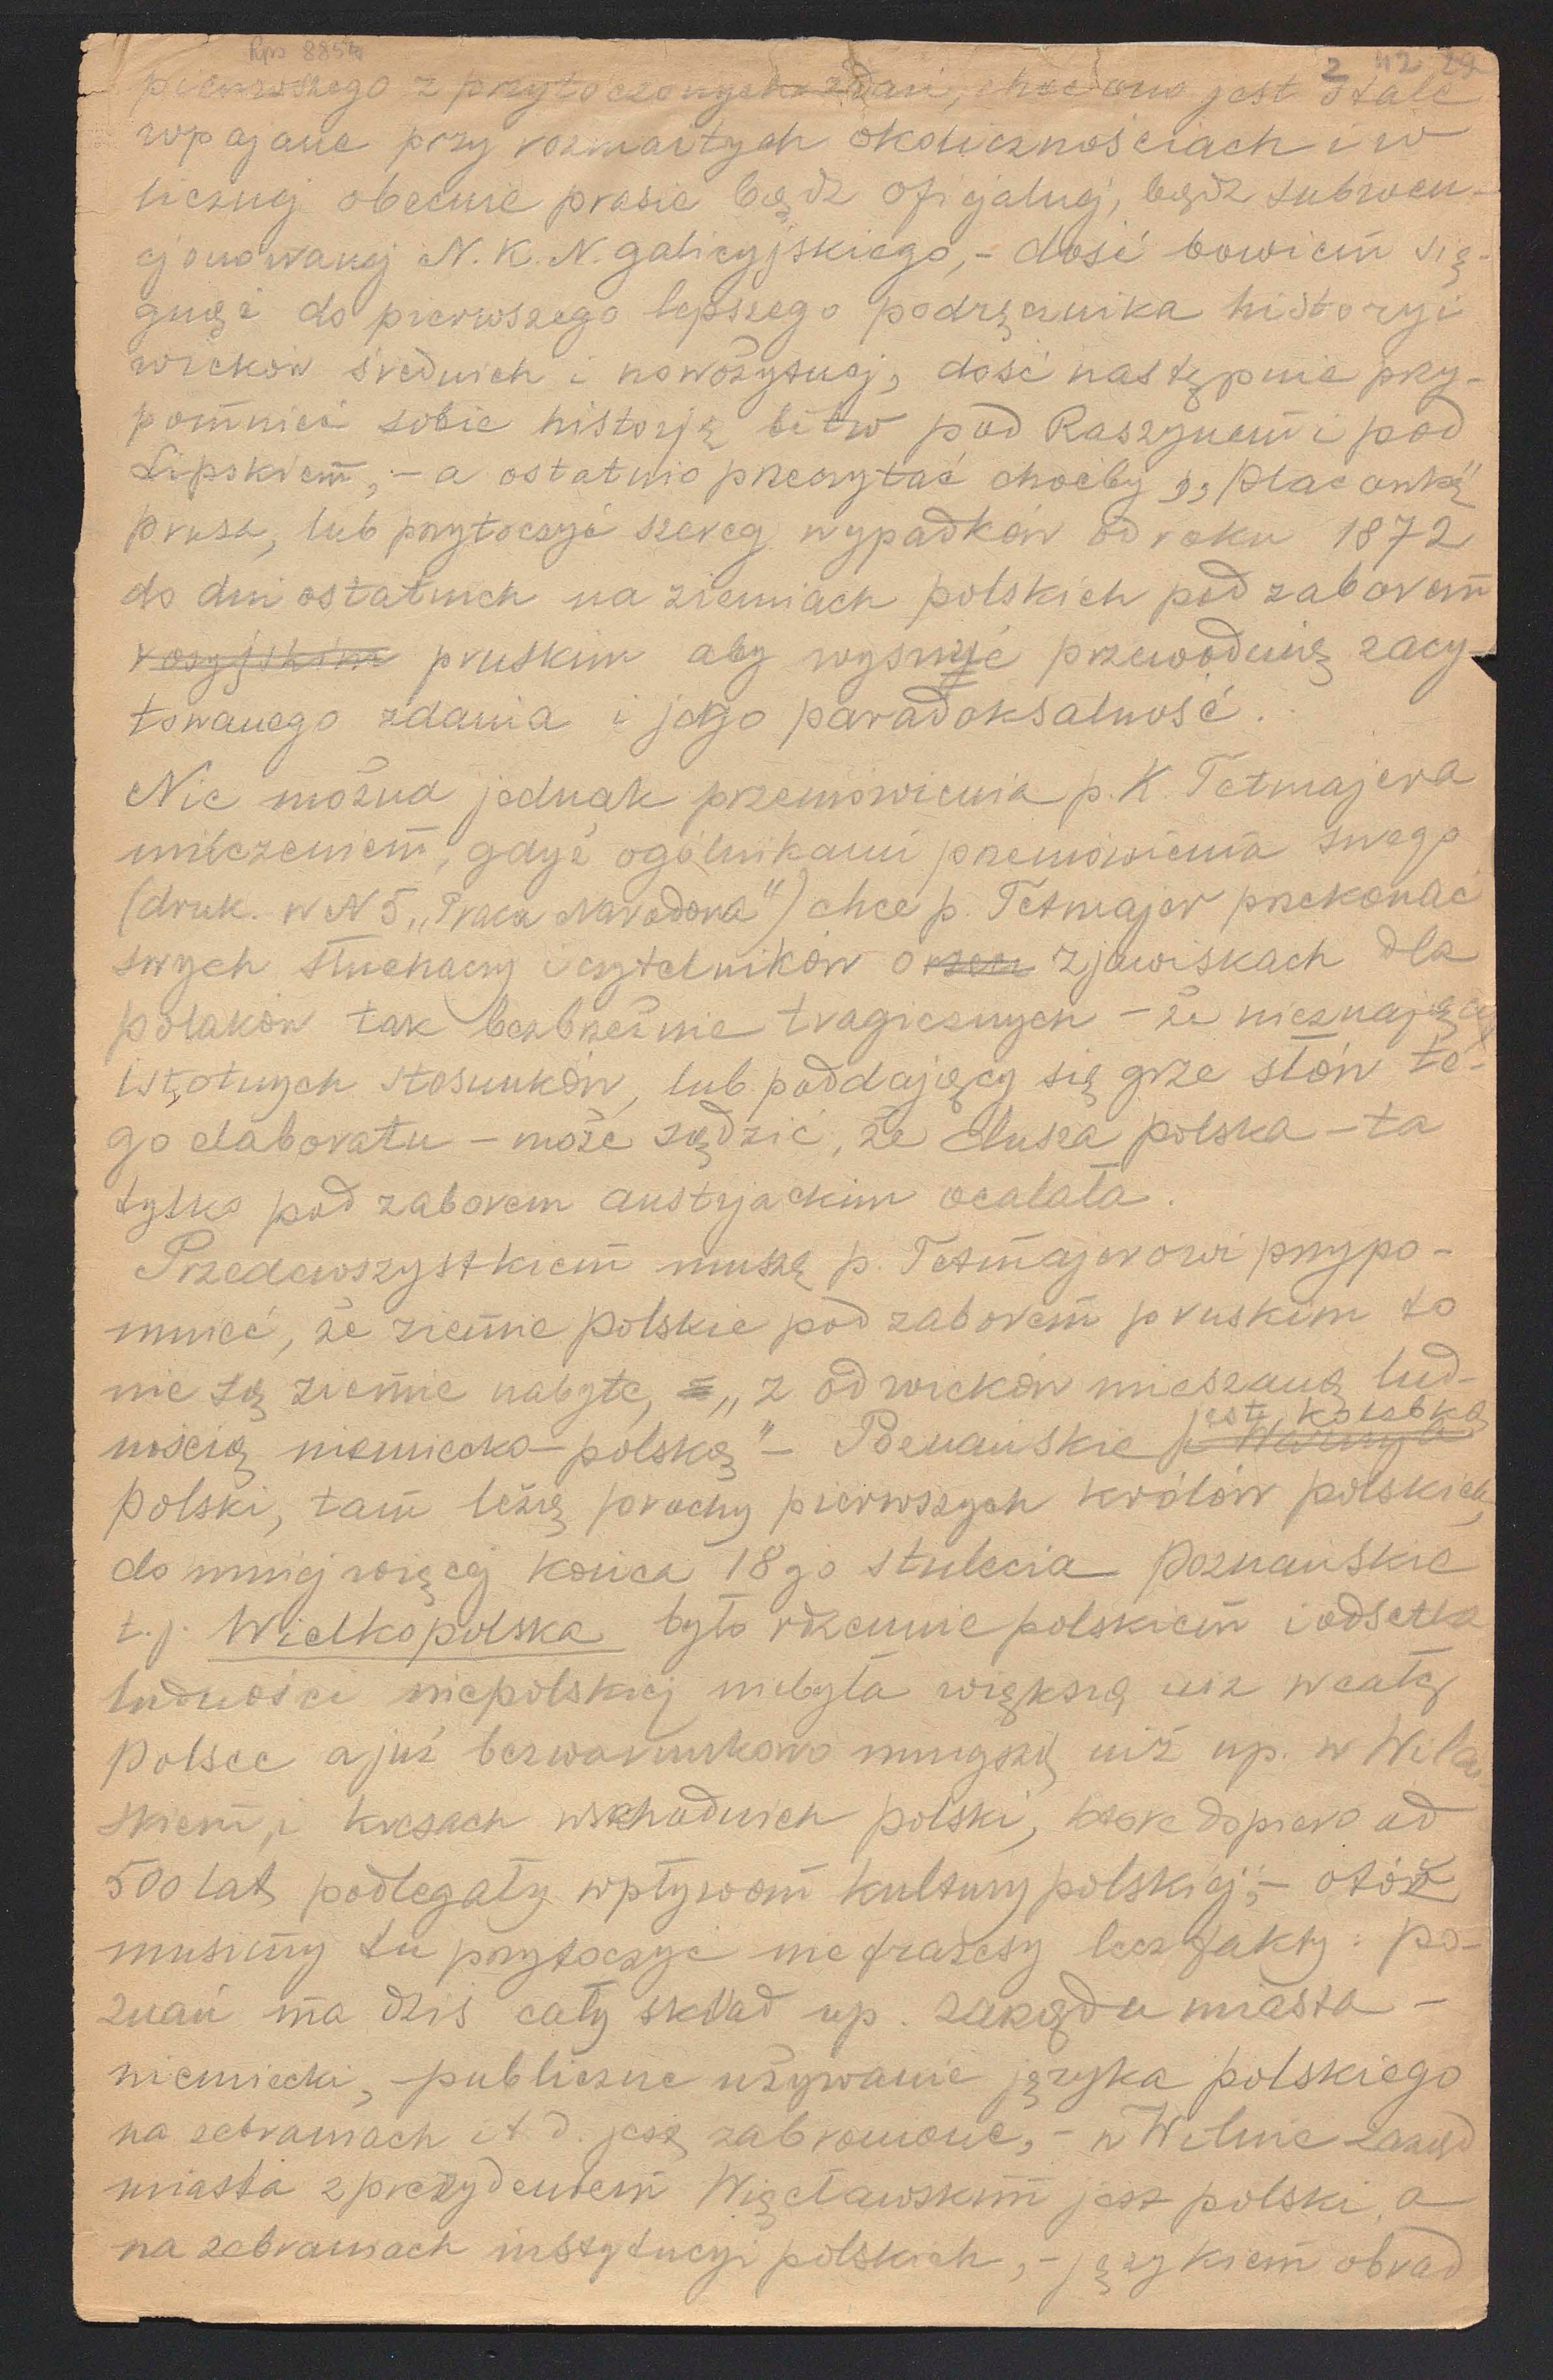 Rps 885
2 42 29
pierwszego z przytoczonych zdań, choć ono jest stale
wpajane przy rozmaitych okolicznościach i w
licznej obecnie prasie bądź oficjalnej, bądź subwen-
cjonowanej N. K. N. galicyjskiego, - dość bowiem się-
gnąć do pierwszego lepszego podręcznika historyi
wieków średnich i nowożytnej, dość następnie przy-
pomnieć sobie historję bitw pod Raszynem i pod
Lipskiem, - a ostatnio przeczytać choćby „Placówkę"
Prusa, lub przytoczyć szereg wypadków od roku 1872
do dni ostatnich na ziemiach polskich pod zaborem
rosyjskim pruskim aby wysnuć przewodnią zacy-
towanego zdania i jego paradoksalność.
Nie można jednak przemówienia p. K. Tetmajera
milczeniem, gdyż ogólnikami przemówienia swego
(druk. w N 5 „Praca Narodowa") chce p. Tetmajer przekonać
swych słuchaczy i czytelników o zjawiskach dla
polaków tak bezbrzeżnie tragicznych - że nieznający
istotnych stosunków, lub poddający się grze słów te-
go elaboratu - może sądzić, że dusza polska - ta
tylko pod zaborem austrjackim ocalała.
Przedewszystkiem muszę p. Tetmajerowi przypo-
mnieć, że ziemie polskie pod zaborem pruskim to
nie są ziemie nabyte, „z od wieków mieszaną lud-
jest kolebką
nością niemiecko-polską" - Poznańskie
Polski, tam leżą prochy pierwszych królów polskich,
do mniej więcej końca 18go stulecia Poznańskie
t.j. Wielkopolska było rdzennie polskiem i odsetka
ludności niepolskiej niebyła większą niż w całej
Polsce a już bezwarunkowo mniejszą niż np. w Wileń-
skiem, i kresach wschodnich polski, które dopiero od
500 lat podlegały wpływom kultury polskiej, - otóż
musimy tu przytoczyć nie frazesy lecz fakty: Po-
znań ma dziś cały skład np. zarządu miasta -
niemiecki, - publiczne używanie języka polskiego
na zebraniach i t d. jest zabronione, - w Wilnie zarząd
miasta z prezydentem Węcławskim jest polski, a
na zebraniach instytucyi polskich, - językiem obrad